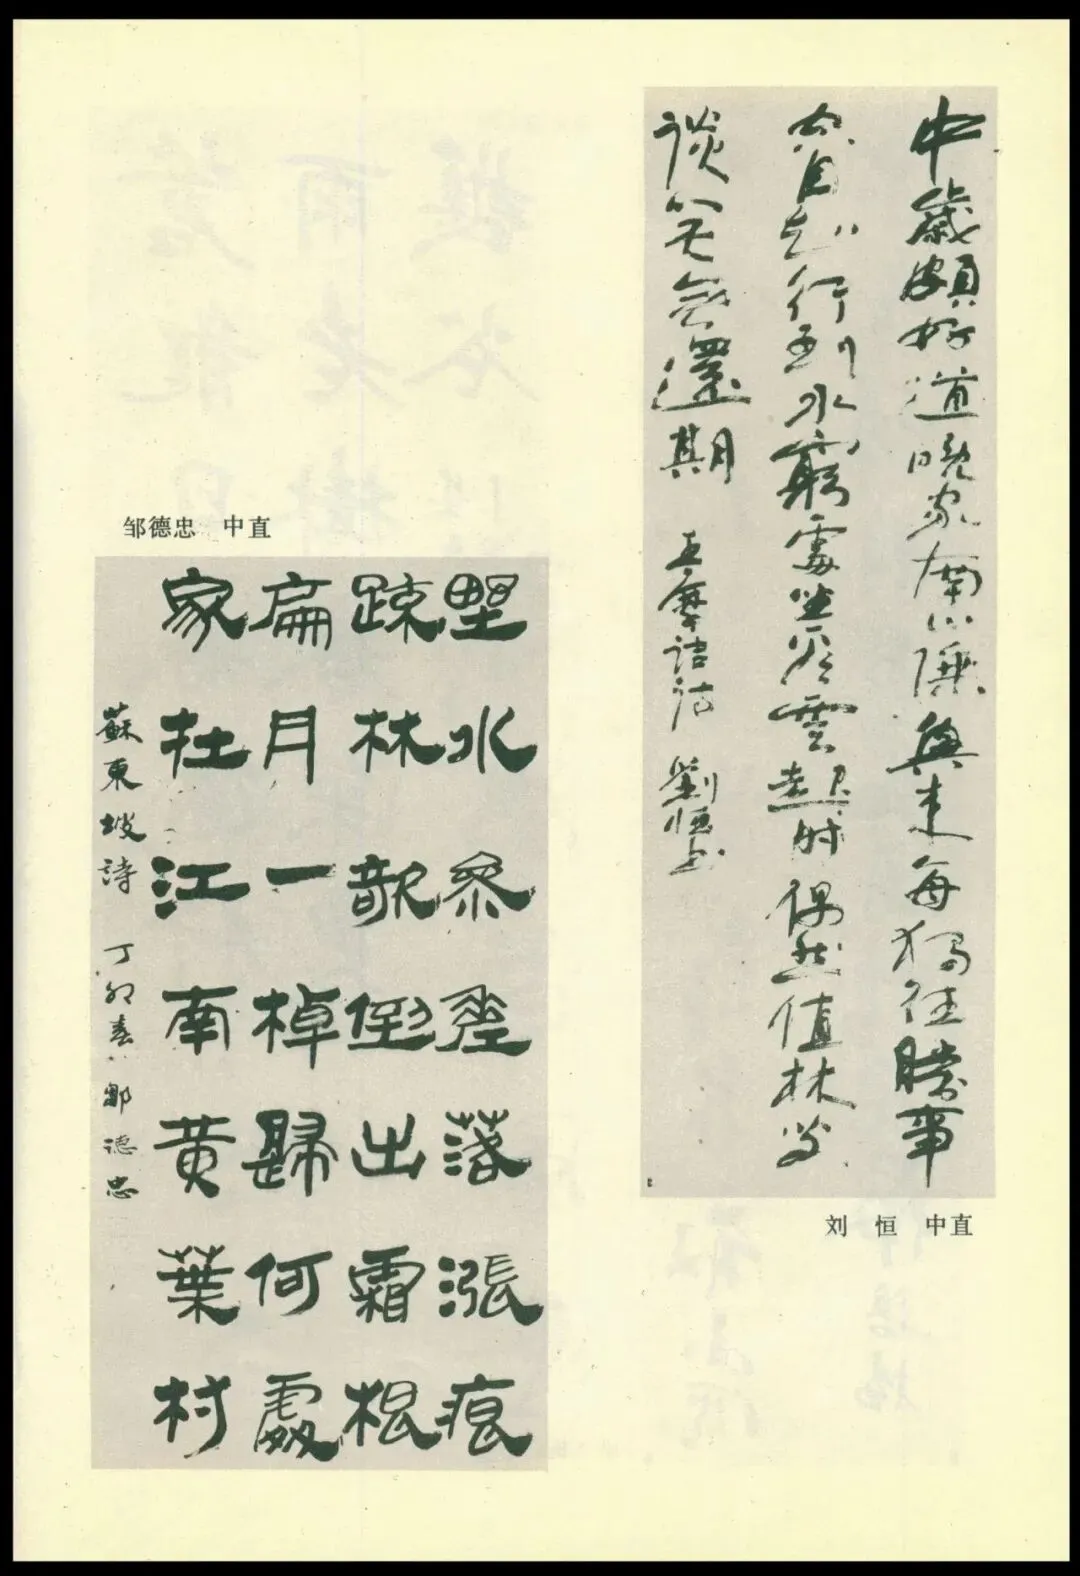 中歲頗好道晚家南山陲興來每獨往勝事
空自知行到水窮處坐看雲起時偶然值林叟
談笑無還期 王摩詰詩 劉恒書
刘 恒 中直
邹德忠 中直
野水參差落漲痕
疎林欹倒出霜根
扁舟一棹歸何處
家在江南黄葉村
蘇東坡詩 丁卯春 鄒德忠